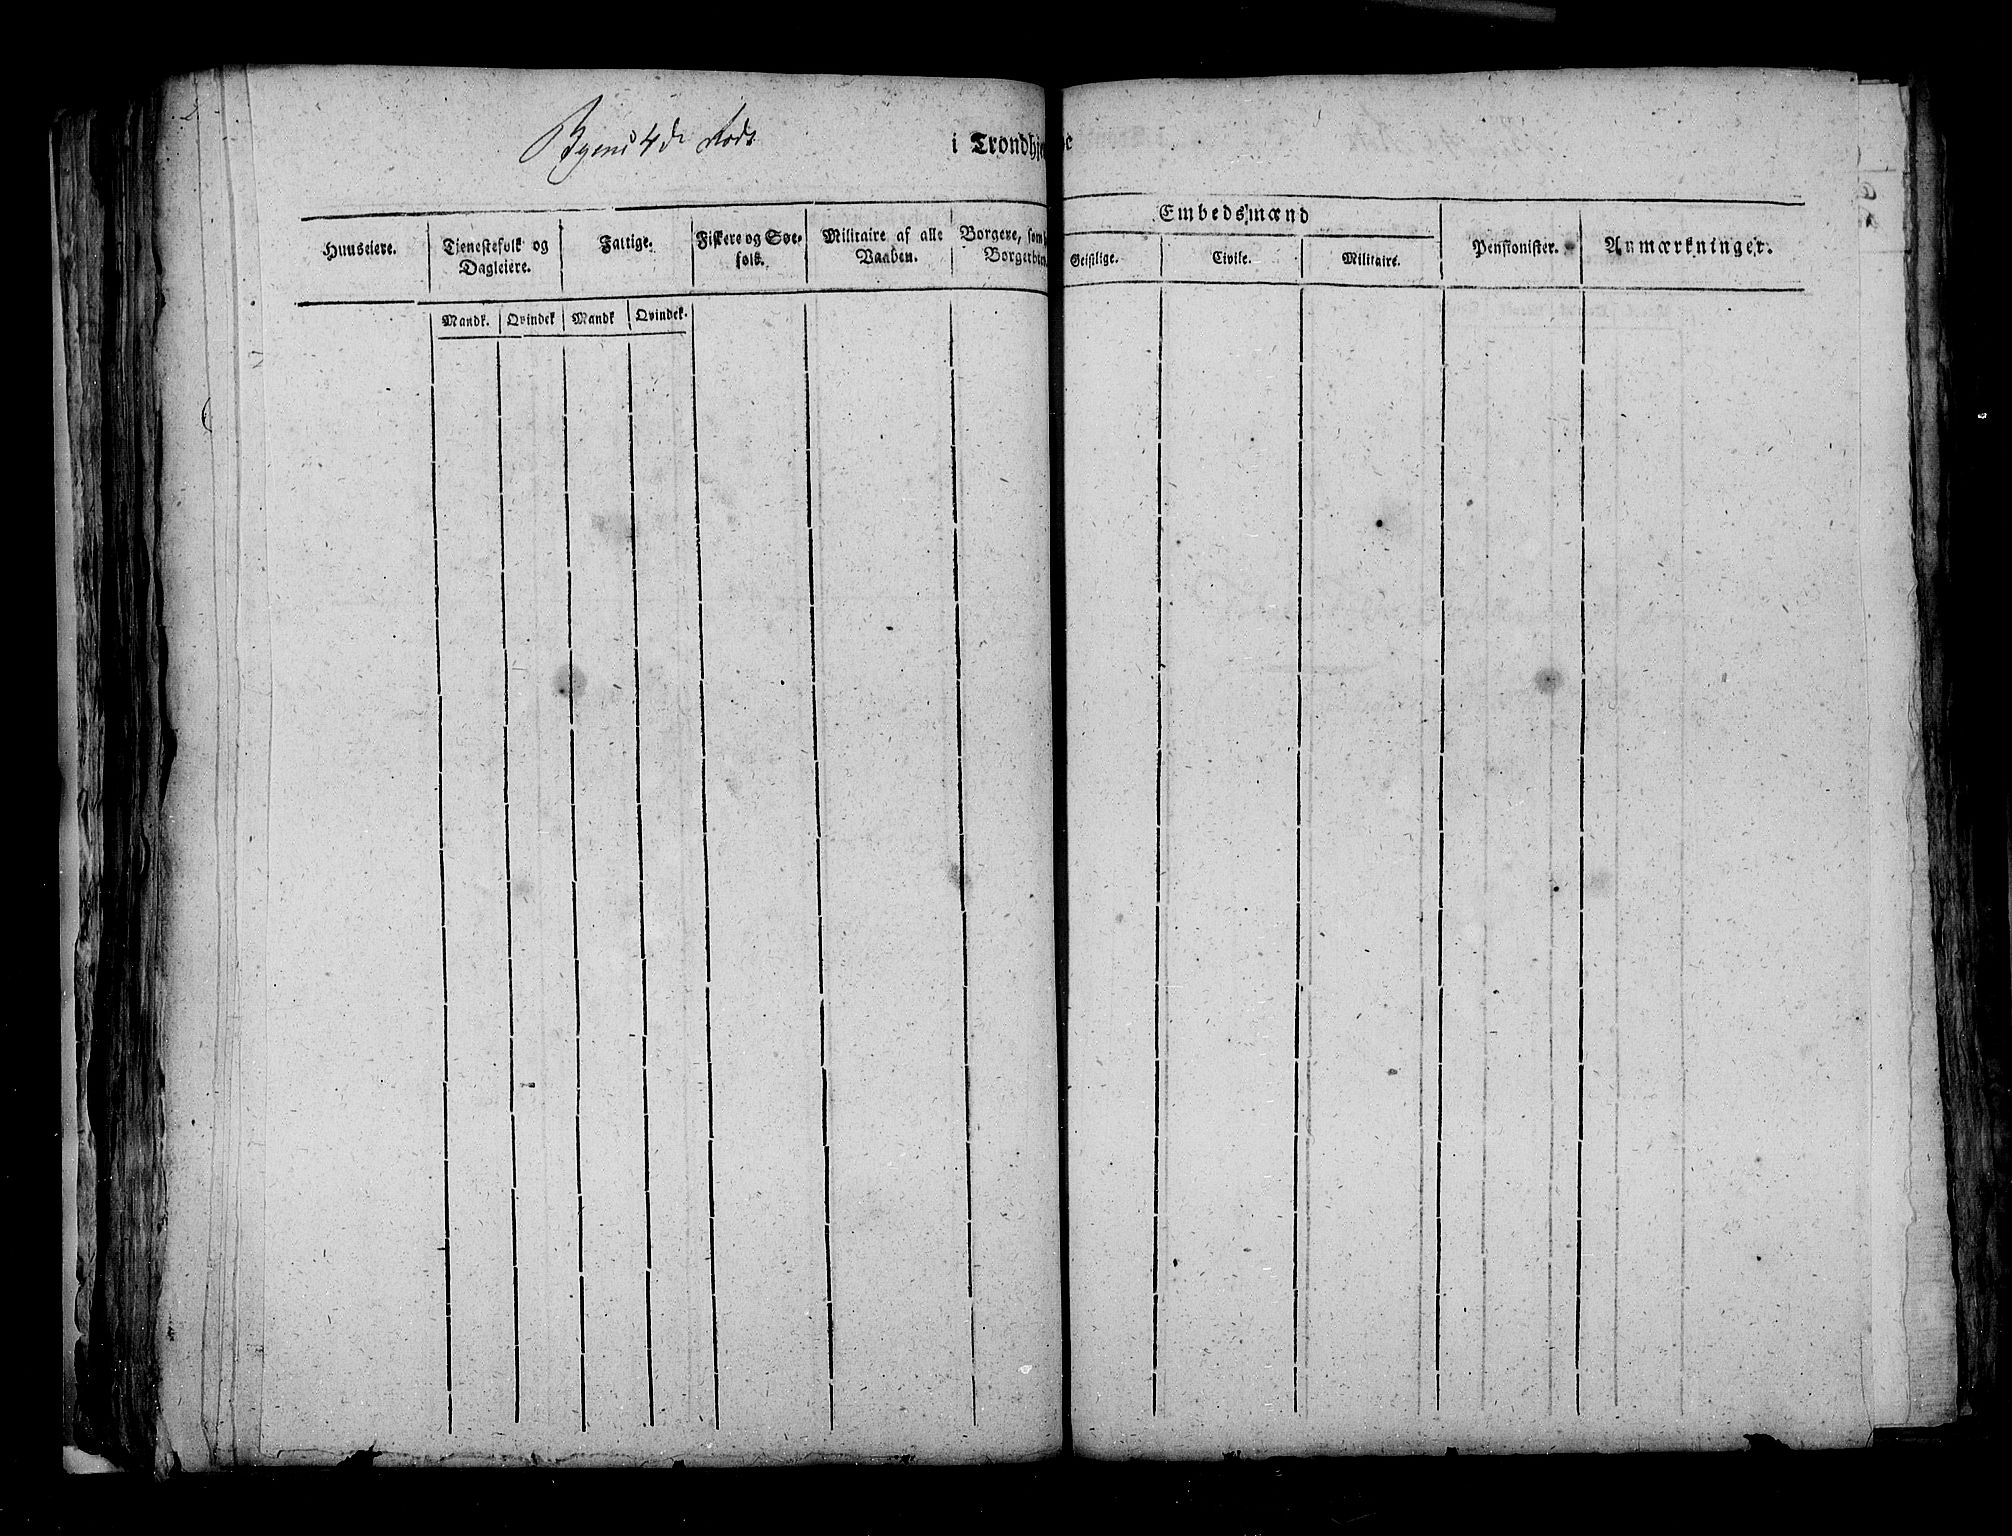 Byens 4de Rode
i Trondhje
Embedsmænd
Huuseiere. Tjenestefolk og Fattige. Fiskere og Søe- Militaire af alle Borgere, som Geistlige. Civile. Militaire. Pensionister. Anmærkninger.
Dagleiere. folk. Vaaben. Borgerbr
Mandk. Qvindek Mandk Qvindek.